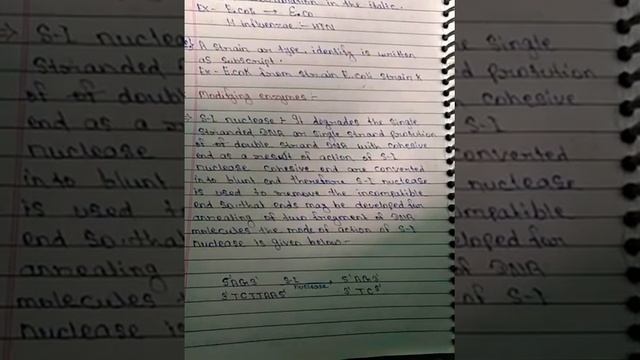 in the italic.
Ex- E.coli → E.co
H influenzae :- HIN
A strain or type identify is written
as subscript.
Ex- EcoK from strain E.coli strain K
Modifying enzymes :-
S-I nuclease :- It degrades the single
stranded DNA or single strand protution
of of double strand DNA with cohesive
end as a result of action of S-I
nuclease cohesive end are converted
into blunt end therefore S-I nuclease
is used to remove the incompatible
end so that ends may be developed for
annealing of two fregment of DNA
molecules the mode of action of S-I
nuclease is given below:-
5'AG3' S-I nuclease 5'AG3'
3'TCTTAA5' 3'TC5'